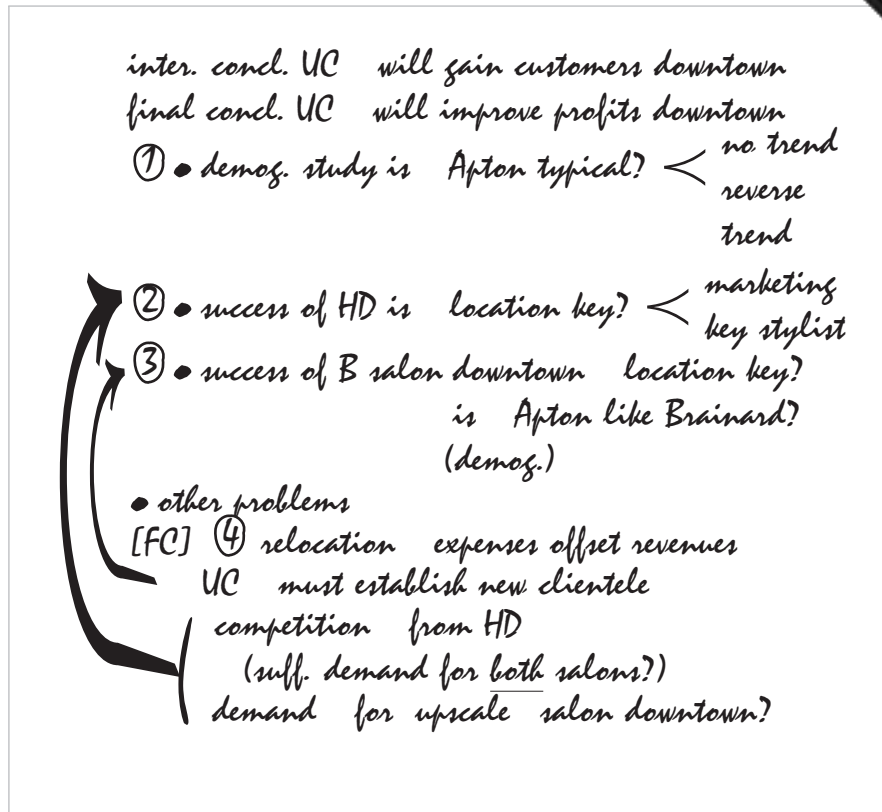 inter. concl. UC will gain customers downtown
final concl. UC will improve profits downtown
① • demog. study is Apton typical? no trend
reverse
trend
② • success of HD is location key? marketing
key stylist
③ • success of B salon downtown location key?
is Apton like Brainard?
(demog.)
• other problems
[FC] ④ relocation expenses offset revenues
UC must establish new clientele
competition from HD
(suff. demand for both salons?)
demand for upscale salon downtown?